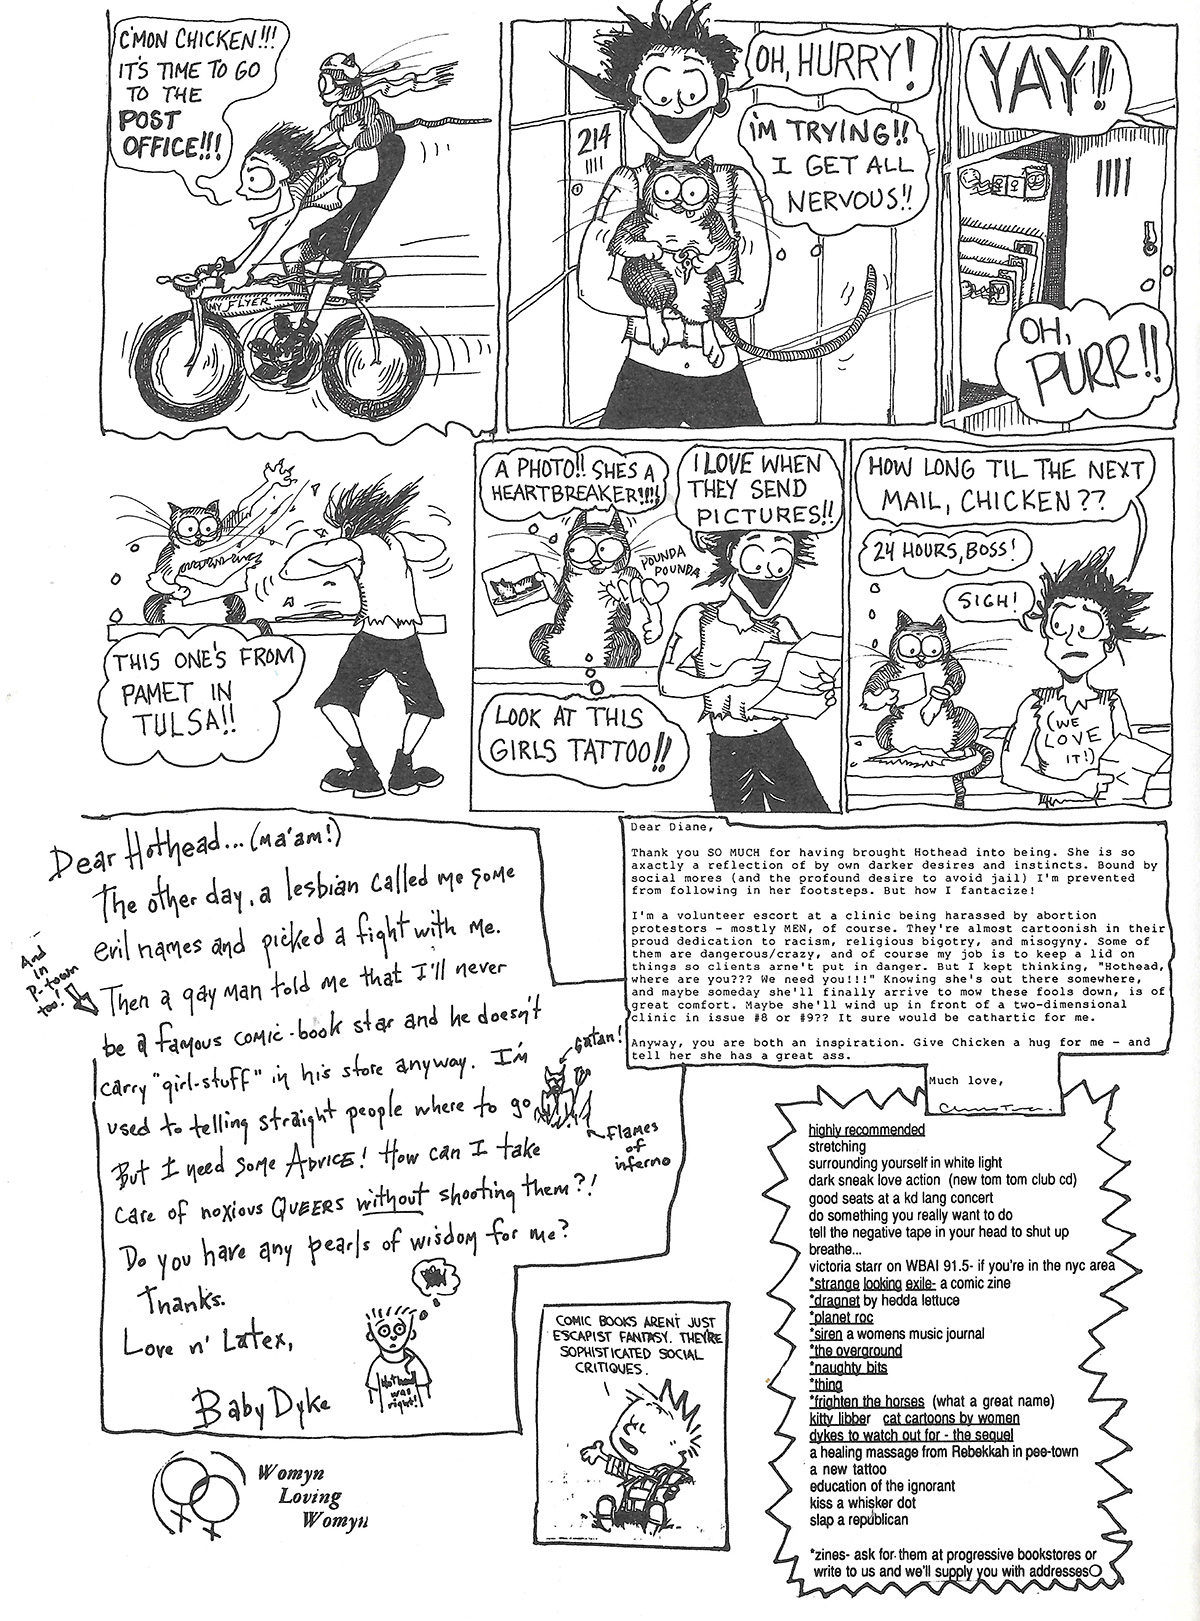 C'MON CHICKEN!!!
IT'S TIME TO GO
TO THE
POST
OFFICE!!!
MY FLYER
OH, HURRY!
214
I'M TRYING!!
I GET ALL
NERVOUS!!
YAY!!
OH,
PURR!!
THIS ONE'S FROM
PAMET IN
TULSA!!
A PHOTO!! SHES A
HEARTBREAKER!!!!
I LOVE WHEN
THEY SEND
PICTURES!!
POUNDA
POUNDA
LOOK AT THIS
GIRLS TATTOO!!
HOW LONG TIL THE NEXT
MAIL, CHICKEN??
24 HOURS, BOSS!
SIGH!
(WE
LOVE
IT!)
Dear Hothead... (ma'am!)
The other day, a lesbian called me some
evil names and picked a fight with me.
And
in
P-town
too!
Then a gay man told me that I'll never
be a famous comic-book star and he doesn't
carry "girl-stuff" in his store anyway. I'm
used to telling straight people where to go
Satan!
Flames
of
inferno
But I need some ADVICE! How can I take
care of noxious QUEERS without shooting them?!
Do you have any pearls of wisdom for me?
Thanks.
Love n' Latex,
Baby Dyke
Hothead
was
right!
Womyn
Loving
Womyn
Dear Diane,
Thank you SO MUCH for having brought Hothead into being. She is so
axactly a reflection of by own darker desires and instincts. Bound by
social mores (and the profound desire to avoid jail) I'm prevented
from following in her footsteps. But how I fantacize!
I'm a volunteer escort at a clinic being harassed by abortion
protestors - mostly MEN, of course. They're almost cartoonish in their
proud dedication to racism, religious bigotry, and misogyny. Some of
them are dangerous/crazy, and of course my job is to keep a lid on
things so clients arne't put in danger. But I kept thinking, "Hothead,
where are you??? We need you!!!" Knowing she's out there somewhere,
and maybe someday she'll finally arrive to mow these fools down, is of
great comfort. Maybe she'll wind up in front of a two-dimensional
clinic in issue #8 or #9?? It sure would be cathartic for me.
Anyway, you are both an inspiration. Give Chicken a hug for me - and
tell her she has a great ass.
Much love,
COMIC BOOKS AREN'T JUST
ESCAPIST FANTASY. THEY'RE
SOPHISTICATED SOCIAL
CRITIQUES.
highly recommended
stretching
surrounding yourself in white light
dark sneak love action (new tom tom club cd)
good seats at a kd lang concert
do something you really want to do
tell the negative tape in your head to shut up
breathe...
victoria starr on WBAI 91.5- if you're in the nyc area
*strange looking exile- a comic zine
*dragnet by hedda lettuce
*planet roc
*siren a womens music journal
*the overground
*naughty bits
*thing
*frighten the horses (what a great name)
kitty libber cat cartoons by women
dykes to watch out for - the sequel
a healing massage from Rebekkah in pee-town
a new tattoo
education of the ignorant
kiss a whisker dot
slap a republican
*zines- ask for them at progressive bookstores or
write to us and we'll supply you with addresses